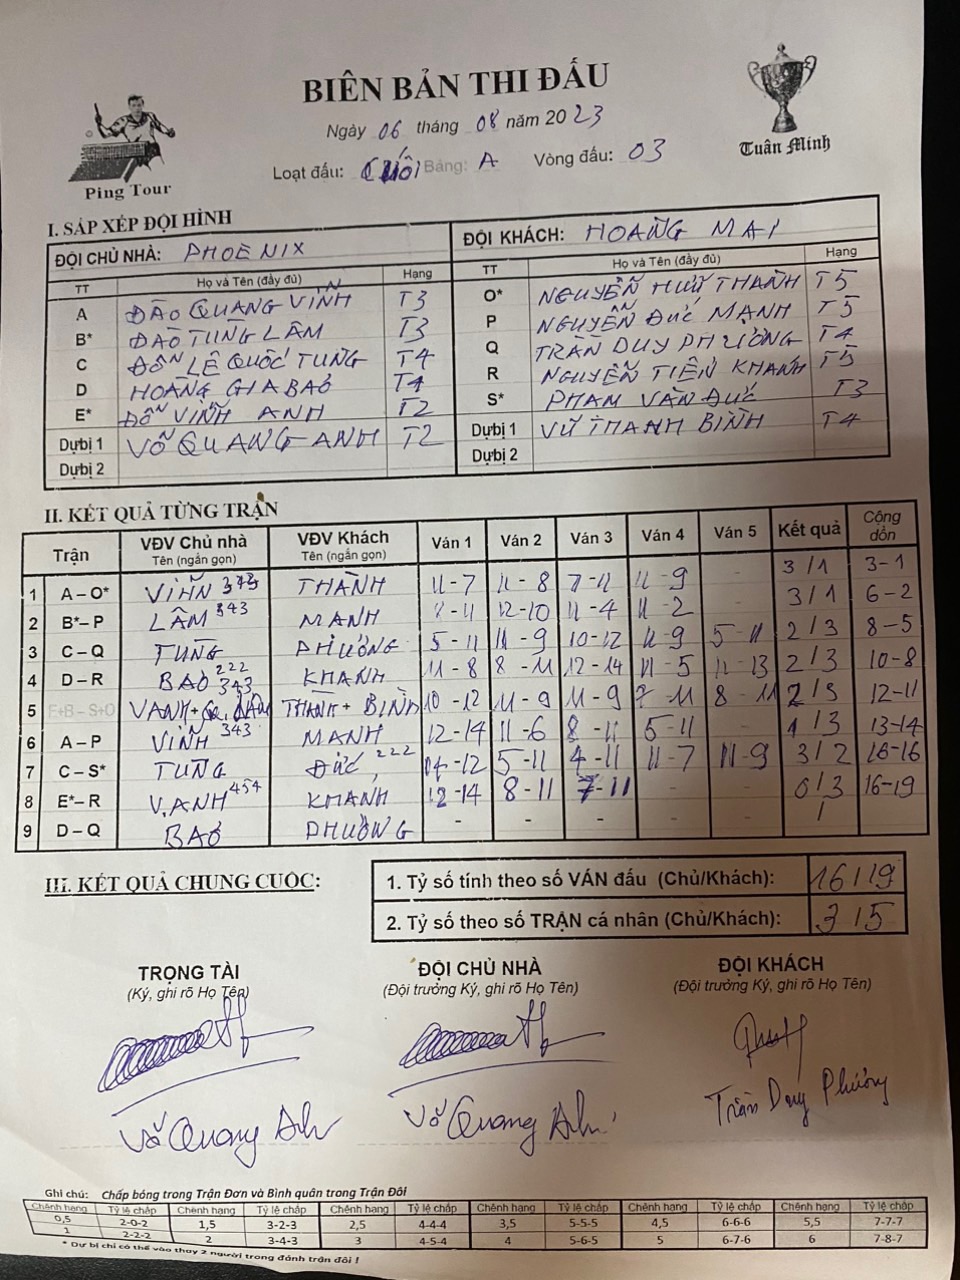 BIÊN BẢN THI ĐẤU
Ping Tour
Tuân Minh
Ngày 06 tháng 08 năm 2023
Loạt đấu: Cuối Bảng: A Vòng đấu: 03
I. SẮP XẾP ĐỘI HÌNH
ĐỘI CHỦ NHÀ: PHOENIX ĐỘI KHÁCH: HOÀNG MAI
TT Họ và Tên (đầy đủ) Hạng TT Họ và Tên (đầy đủ) Hạng
A ĐÀO QUANG VINH T3 O* NGUYỄN HỮU THÀNH T5
B* ĐÀO TÙNG LÂM T3 P NGUYỄN ĐỨC MẠNH T5
C ĐÔN LÊ QUỐC TÙNG T4 Q TRẦN DUY PHƯƠNG T4
D HOÀNG GIA BẢO T4 R NGUYỄN TIẾN KHANH T5
E* ĐỖ VINH ANH T2 S* PHẠM VĂN ĐỨC T3
Dự bị 1 VÕ QUANG ANH T2 Dự bị 1 VŨ THANH BÌNH T4
Dự bị 2 Dự bị 2
II. KẾT QUẢ TỪNG TRẬN
Trận VĐV Chủ nhà Tên (ngắn gọn) VĐV Khách Tên (ngắn gọn) Ván 1 Ván 2 Ván 3 Ván 4 Ván 5 Kết quả Cộng dồn
1 A – O* VINH 343 THÀNH 11-7 11-8 7-11 11-9 - 3/1 3-1
2 B*– P LÂM 343 MẠNH 8-11 12-10 11-4 11-2 - 3/1 6-2
3 C – Q TÙNG PHƯƠNG 5-11 11-9 10-12 11-9 5-11 2/3 8-5
4 D – R BẢO 222 KHANH 11-8 8-11 12-14 11-5 11-13 2/3 10-8
5 E+B – S+O VANH+Q.LÂM 343 THÀNH+BÌNH 10-12 11-9 11-9 7-11 8-11 2/3 12-11
6 A – P VINH 343 MẠNH 12-14 11-6 8-11 5-11 - 1/3 13-14
7 C – S* TÙNG ĐỨC 222 14-12 5-11 4-11 11-7 11-9 3/2 16-16
8 E*– R V.ANH 454 KHANH 12-14 8-11 7-11 - - 0/3 16-19
9 D – Q BẢO PHƯƠNG - - - - - /
III. KẾT QUẢ CHUNG CUỘC:
1. Tỷ số tính theo số VÁN đấu (Chủ/Khách): 16/19
2. Tỷ số theo số TRẬN cá nhân (Chủ/Khách): 3/5
TRỌNG TÀI ĐỘI CHỦ NHÀ ĐỘI KHÁCH
(Ký, ghi rõ Họ Tên) (Đội trưởng Ký, ghi rõ Họ Tên) (Đội trưởng Ký, ghi rõ Họ Tên)
Võ Quang Anh Võ Quang Anh Trần Duy Phương
Ghi chú: Chấp bóng trong Trận Đơn và Bình quân trong Trận Đôi
Chênh hạng Tỷ lệ chấp Chênh hạng Tỷ lệ chấp Chênh hạng Tỷ lệ chấp Chênh hạng Tỷ lệ chấp Chênh hạng Tỷ lệ chấp Chênh hạng Tỷ lệ chấp
0,5 2-0-2 1,5 3-2-3 2,5 4-4-4 3,5 5-5-5 4,5 6-6-6 5,5 7-7-7
1 2-2-2 2 3-4-3 3 4-5-4 4 5-6-5 5 6-7-6 6 7-8-7
* Dự bị chỉ có thể vào thay 2 người trong đánh trận đôi !